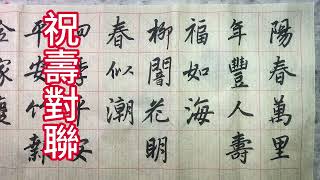 祝壽對聯
陽春萬里
年豐人壽
福如海
柳闇花明
春似潮
四季平安
平安竹
家